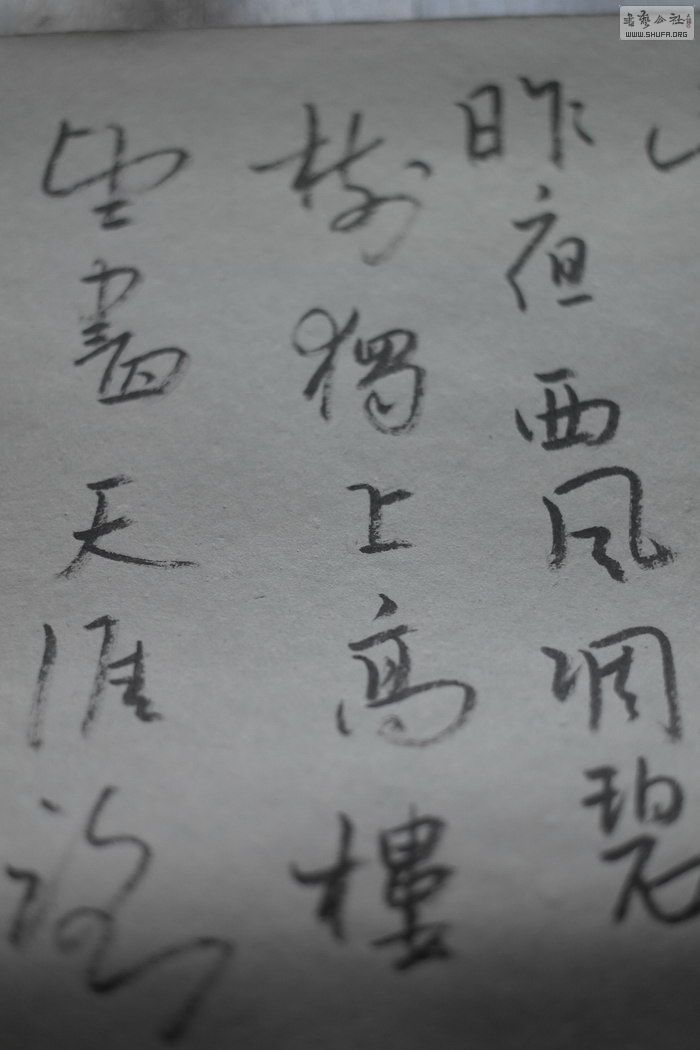 昨夜西风凋碧
樹獨上高樓
望盡天涯路
書藝公社
WWW.SHUFA.ORG